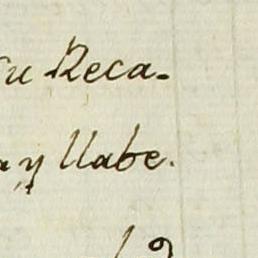 su Reca-
a y llabe.